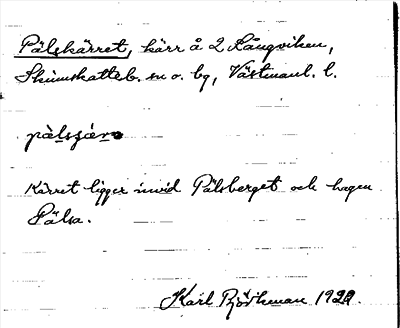 Pälskärret, kärr å 2 Långviken,
Skinnskatteb. sn o. bg, Västmanl. l.
Kärret ligger invid Pälsberget och hagen
Pälsa.
Karl Björkman 1920.